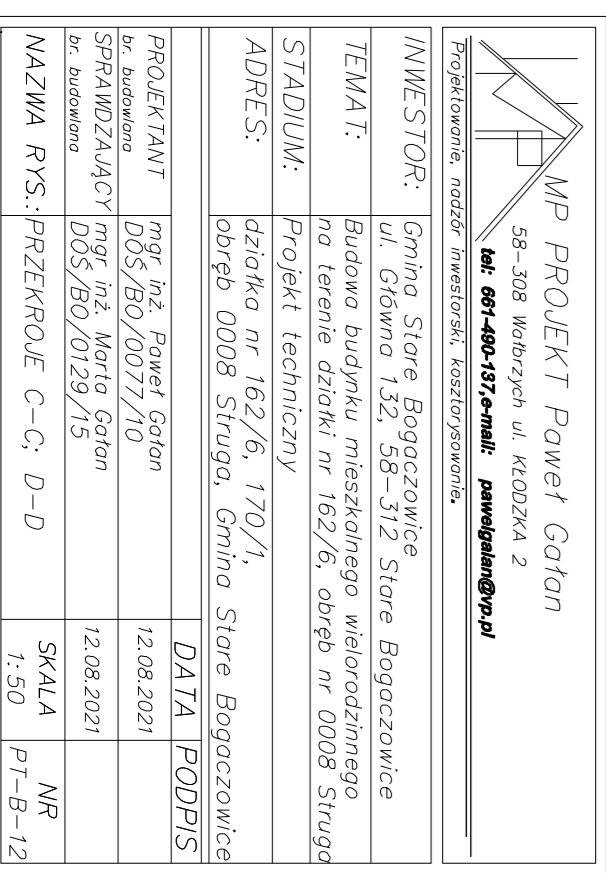 MP PROJEKT Paweł Gałan
58-308 Wałbrzych ul. KŁODZKA 2
tel: 661-490-137,e-mail: pawelgalan@vp.pl
Projektowanie, nadzór inwestorski, kosztorysowanie.
INWESTOR: Gmina Stare Bogaczowice
ul. Główna 132, 58-312 Stare Bogaczowice
TEMAT: Budowa budynku mieszkalnego wielorodzinnego
na terenie działki nr 162/6, obręb nr 0008 Struga
STADIUM: Projekt techniczny
ADRES: działka nr 162/6, 170/1,
obręb 0008 Struga, Gmina Stare Bogaczowice
DATA PODPIS
PROJEKTANT mgr inż. Paweł Gałan 12.08.2021
br. budowlana DOŚ/BO/0077/10
SPRAWDZAJĄCY mgr inż. Marta Gałan 12.08.2021
br. budowlana DOŚ/BO/0129/15
NAZWA RYS.: PRZEKROJE C-C; D-D SKALA NR
1:50 PT-B-12